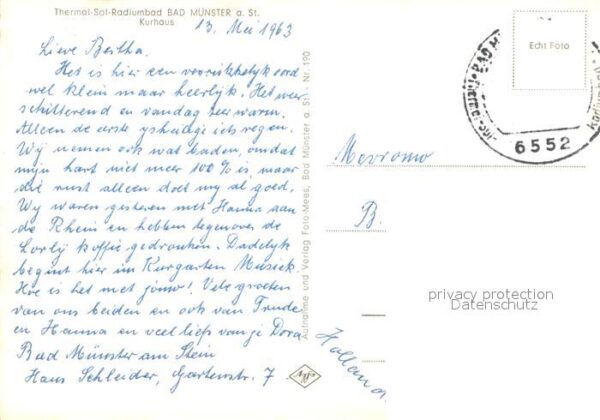 Thermal-Sol-Radiumbad BAD MÜNSTER a. St.
Kurhaus
13. Mei 1963
Lieve Bertha.
Het is hier een voortreffelijk oord
wel klein maar heerlijk. Het weer
schitterend en vandag zeer warm.
Alleen de eerste yshauge ich regen.
Wij nemen ook wat baden, omdat
mijn hart niet meer 100% is, maar
die rust alleen doet my al goed.
Wy waren gisteren met Hanna aan
de Rhein en hebben tegenover de
Lorlij koffie gedronken. Dadelyk
begint hier im Kurgarten Musiek.
Hoe is het met jómo! Vele groeten
van ons beiden en ook van Trude
en Hanna en veel liefs van je Dora
Bad Münster am Stein
Haus Schleider, Gartenstr. 7
Aufnahme und Verlag Foto-Mees, Bad Münster a. St. Nr. 190
Agfa
Echt Foto
BAD M
Radiumheil
6552
Mevrouw
B.
Holland
privacy protection
Datenschutz